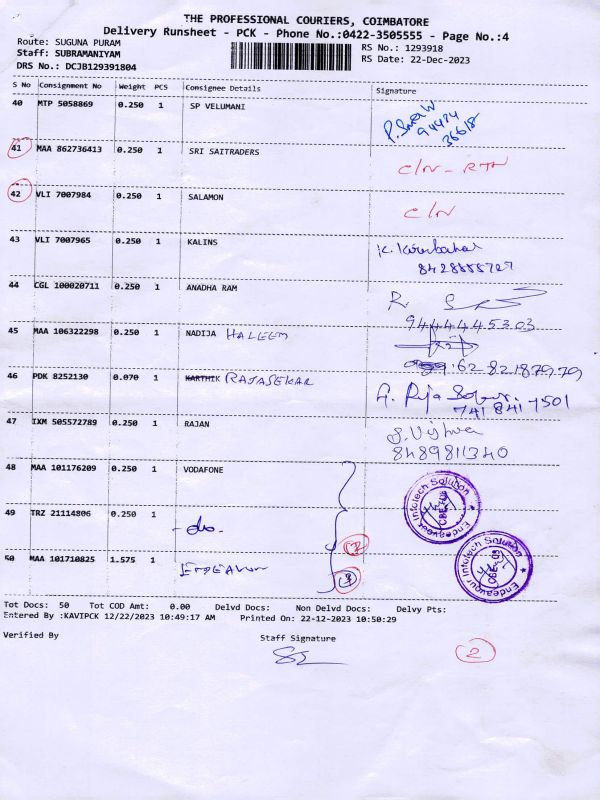 THE PROFESSIONAL COURIERS, COIMBATORE
Delivery Runsheet - PCK - Phone No.:0422-3505555 - Page No.:4
Route: SUGUNA PURAM
Staff: SUBRAMANIYAM
DRS No.: DCJB129391804
RS No.: 1293918
RS Date: 22-Dec-2023
S No Consignment No Weight PCS Consignee Details Signature
40 MTP 5058869 0.250 1 SP VELUMANI
94424
36618
41 MAA 862736413 0.250 1 SRI SAITRADERS C/N - RTN
42 VLI 7007984 0.250 1 SALAMON C/N
43 VLI 7007965 0.250 1 KALINS
44 CGL 100020711 0.250 1 ANADHA RAM
9444445303
45 MAA 106322298 0.250 1 NADIJA HALEEM
46 PDK 8252130 0.070 1 KARTHIK RAJASEKAR
741 841 7501
47 IXM 505572789 0.250 1 RAJAN S. Vishwa
8489811340
48 MAA 101176209 0.250 1 VODAFONE
Endeavour Infotech Solution
49 TRZ 21114806 0.250 1 - do.
Endeavour Infotech Solution
50 MAA 101710825 1.575 1
Tot Docs: 50 Tot COD Amt: 0.00 Delvd Docs: Non Delvd Docs: Delvy Pts:
Entered By :KAVIPCK 12/22/2023 10:49:17 AM Printed On: 22-12-2023 10:50:29
Verified By Staff Signature
2